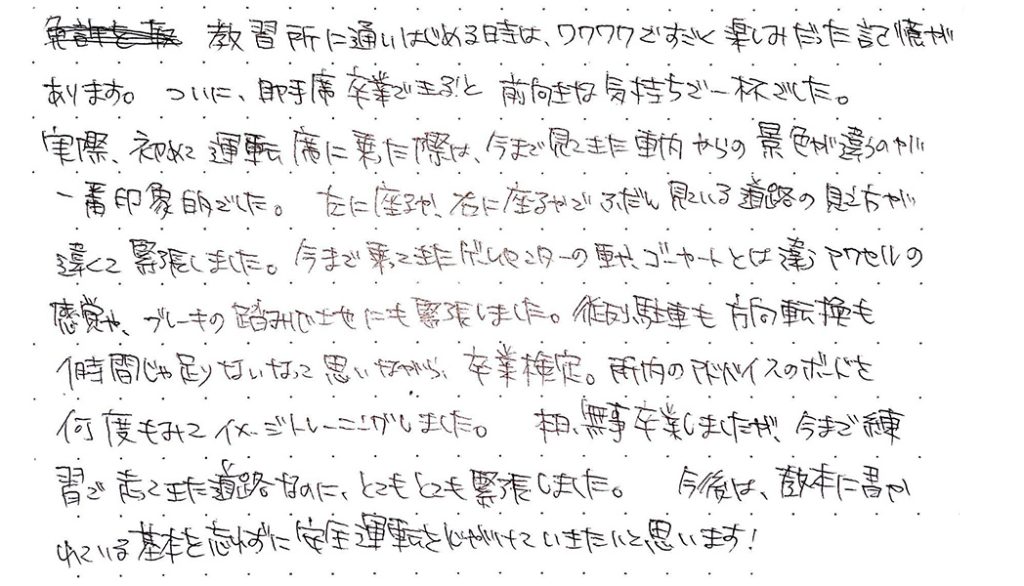 教習所に通いはじめる時は、ワクワクですごく楽しみだった記憶が
あります。 ついに、助手席卒業できるぞ!と 前向きな気持ちで一杯でした。
実際、初めて運転席に乗った際は、今まで見てきた車内からの景色が違うのが
一番印象的でした。 左に座るか、右に座るかで ふだん見ている道路の見え方が
違くて緊張しました。今まで乗ってきたゲームセンターの車や、ゴーカートとは違うアクセルの
感覚や、ブレーキの踏みにも緊張しました。縦列駐車も方向転換も
1時間じゃ足りないなって思いながら、卒業検定。所内のアドバイスのボードを
何度もみてイメージトレーニングしました。 無事卒業しましたが、今まで練
習で走ってきた道路なのに、とてもとても緊張しました。 今後は、教本に書か
れている基本を忘れずに安全運転を心がけていきたいと思います!